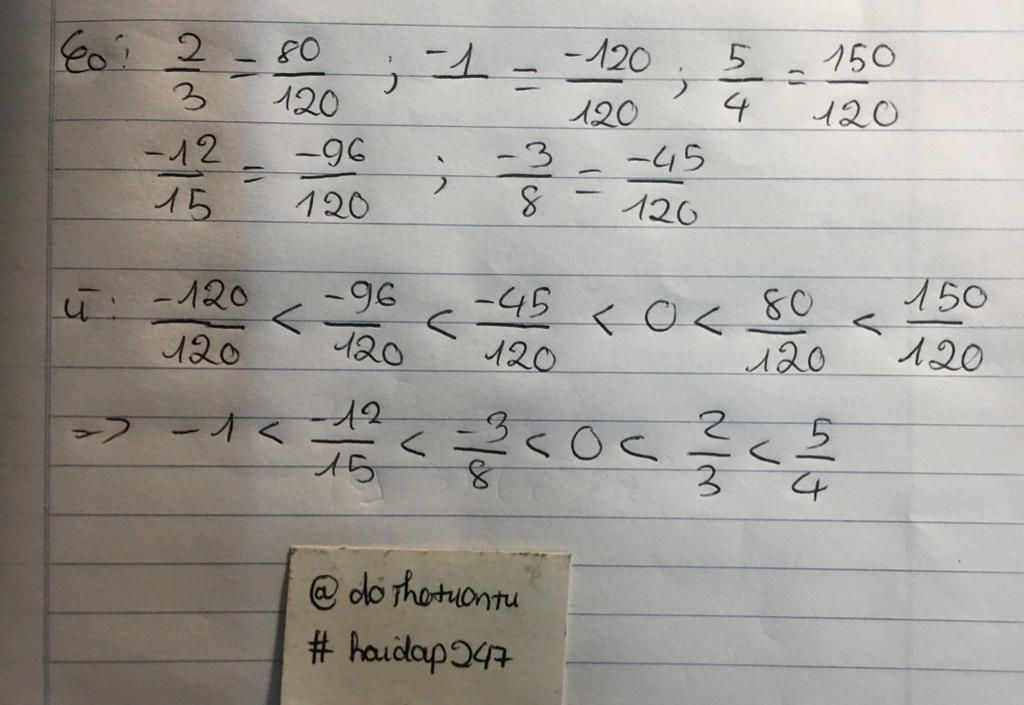 Có: 2/3 = 80/120 ; -1 = -120/120 ; 5/4 = 150/120
-12/15 = -96/120 ; -3/8 = -45/120
-120/120 < -96/120 < -45/120 < 0 < 80/120 < 150/120
=> -1 < -12/15 < -3/8 < 0 < 2/3 < 5/4
@ dothatuantu
# hoidap247